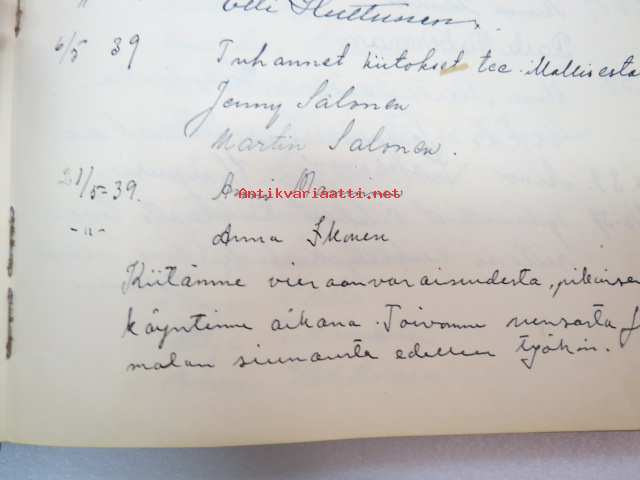 " Olli Huttunen.
6/5 39 Tuhannet kiitokset tee. Mallisesta
Jenny Salonen
Martin Salonen.
21/5-39. Anni
Antikvariaatti.net
-"- Anna Ikonen
Kiitämme vieraanvaraisuudesta, pikaisen
käyntimme aikana. Toivomme runsasta J
malan siunausta edelleen työhön.